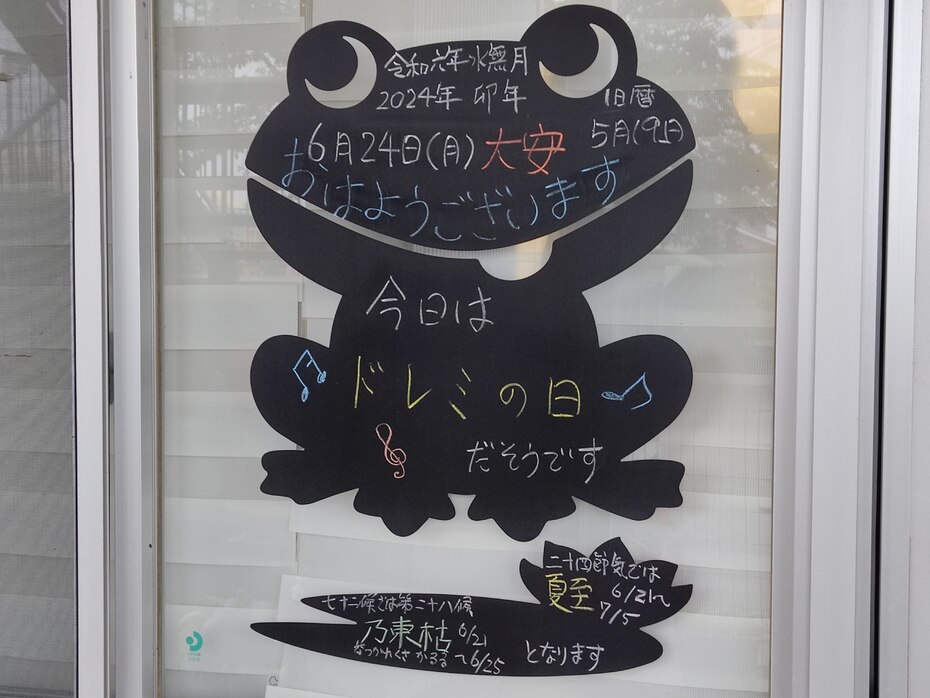 令和六年水無月
2024年 卯年
旧暦
5月19日
6月24日(月) 大安
おはようございます
今日は
ドレミの日
だそうです
二十四節気では
夏至 6/21〜
7/5
七十二候では第二十八候
乃東枯 6/21
なつかれくさかるる 〜6/25
となります